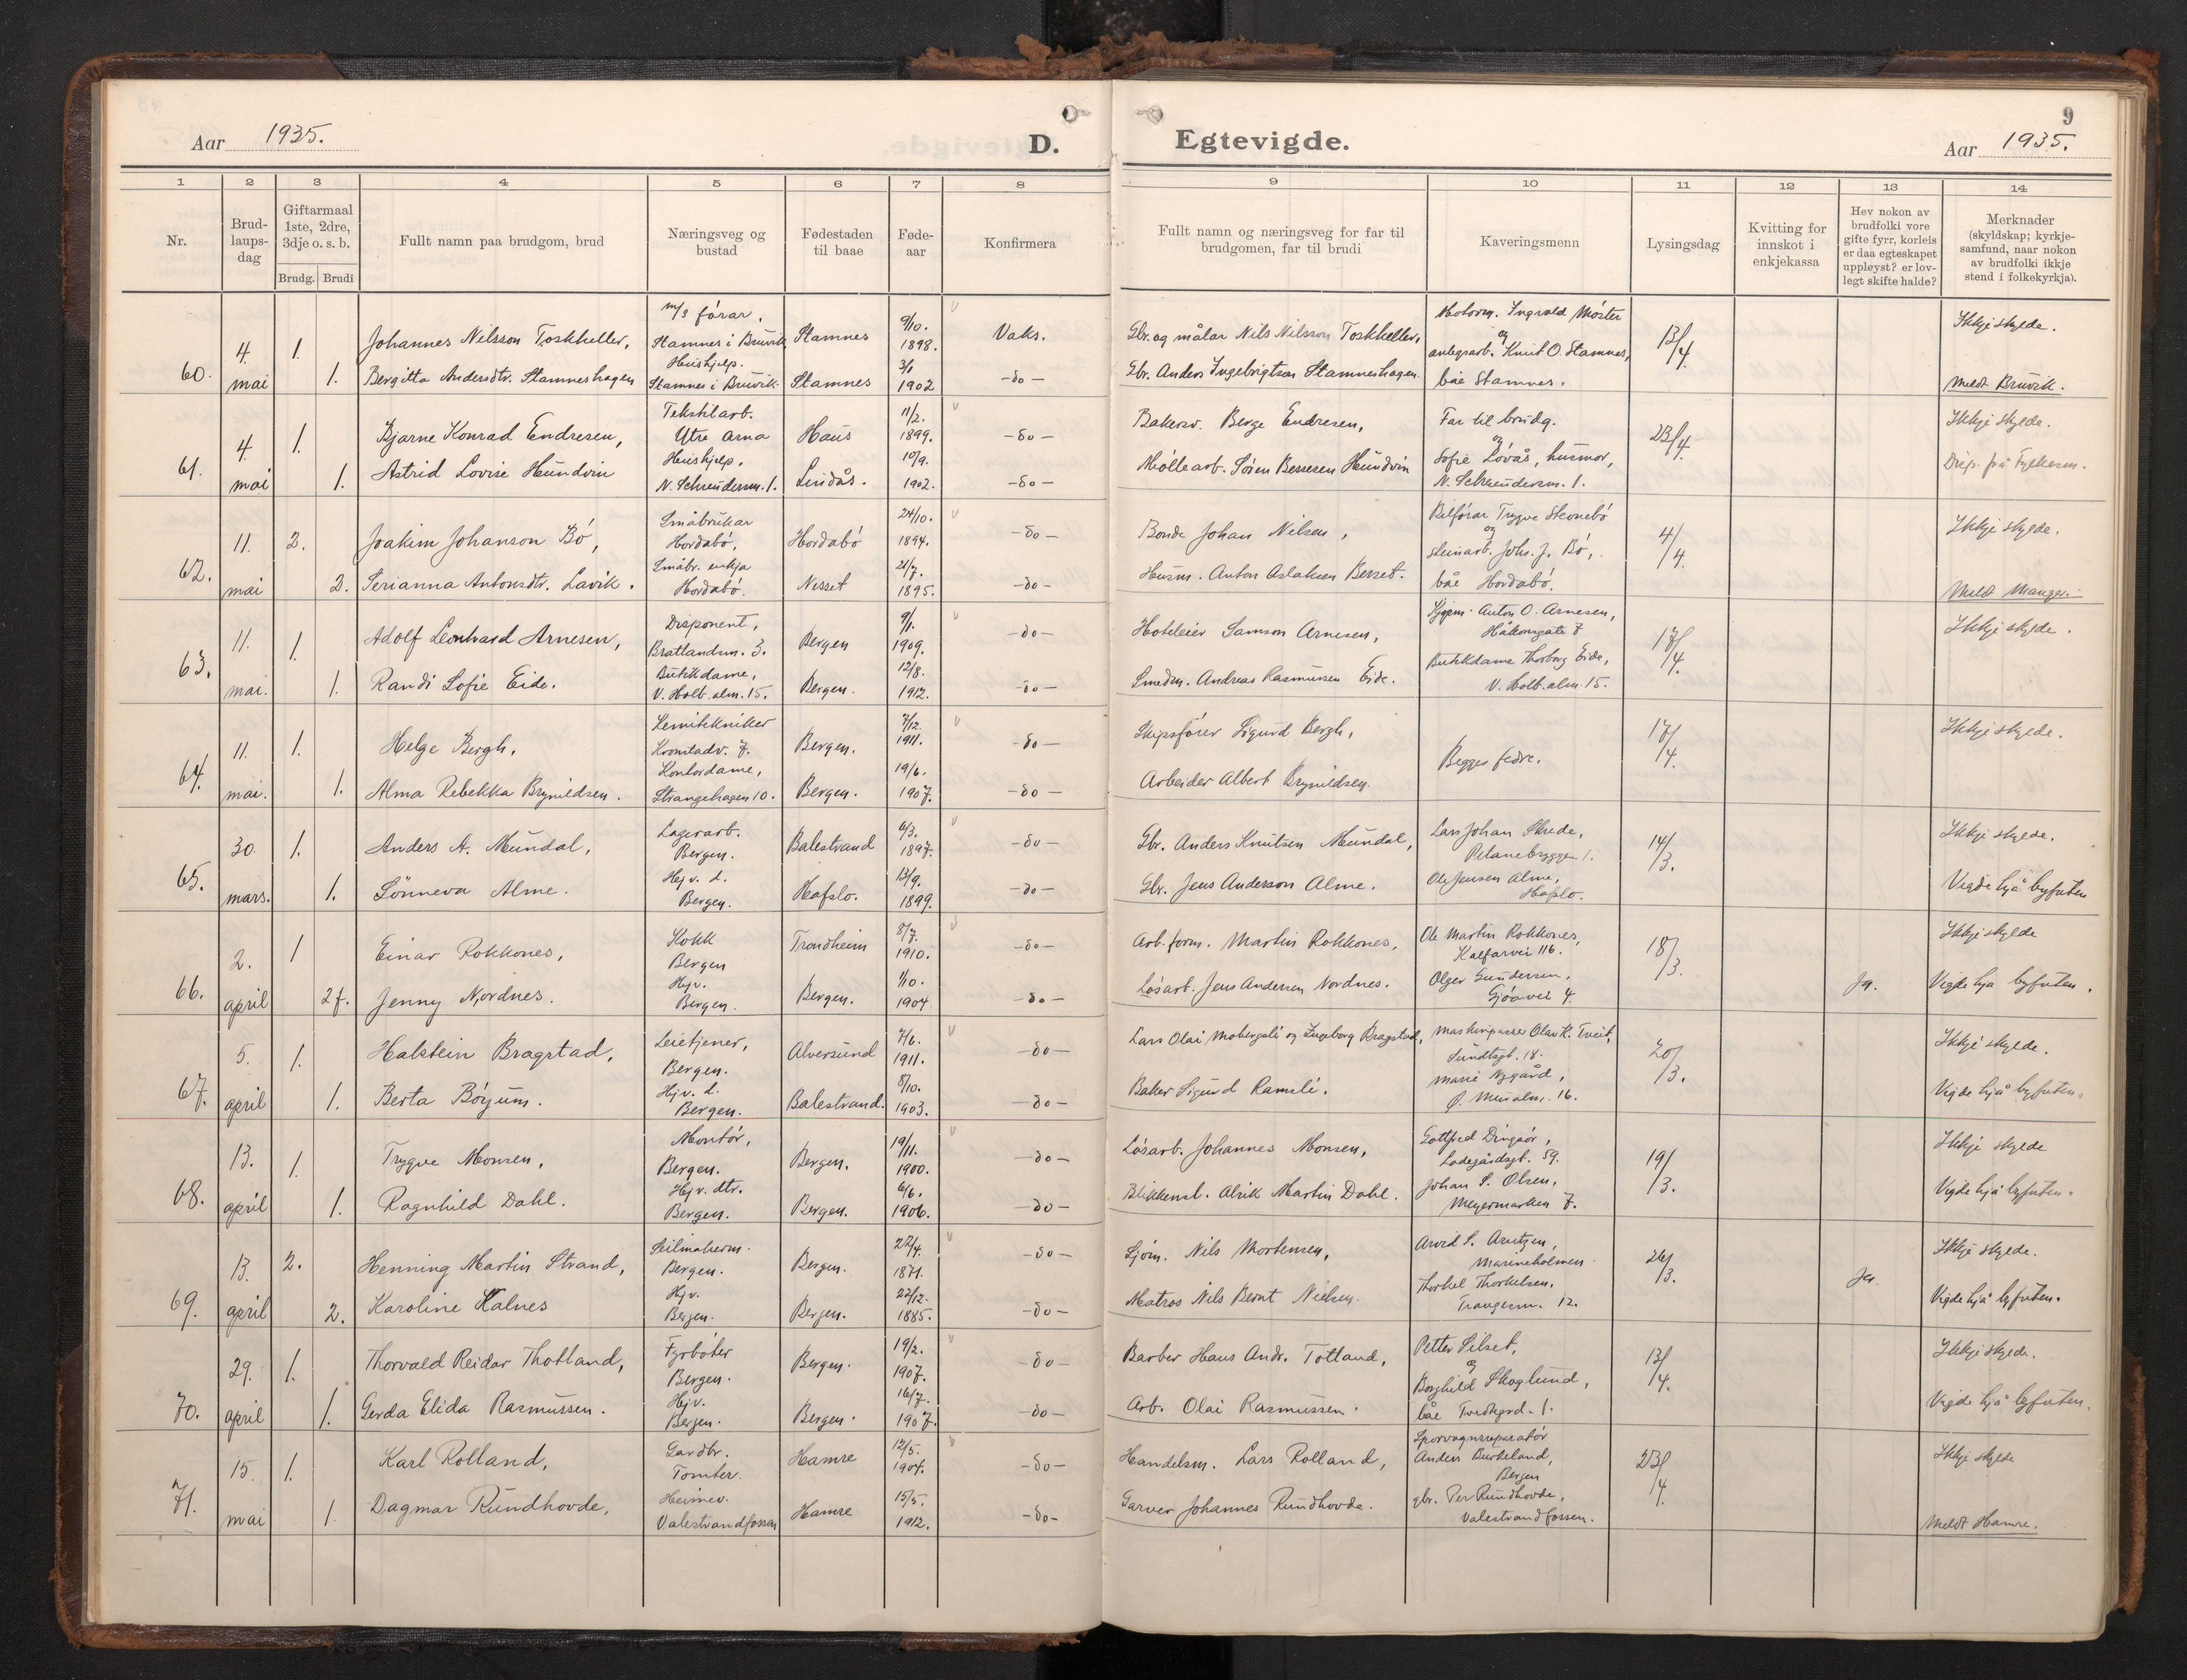 Aar 1935.
D.
Egtevigde.
9
Aar 1935.
1 2 3 4 5 6 7 8 9 10 11 12 13 14
Nr.
Brud-
laups-
dag
Giftarmaal
1ste, 2dre,
3dje o. s. b.
Brudg. Brudi
Fullt namn paa brudgom, brud
Næringsveg og
bustad
Fødestaden
til baae
Føde-
aar
Konfirmera
Fullt namn og næringsveg for far til
brudgomen, far til brudi
Kaveringsmenn
Lysingsdag
Kvitting for
innskot i
enkjekassa
Hev nokon av
brudfolki vore
gifte fyrr, korleis
er daa egteskapet
uppløyst? er lov-
legt skifte halde?
Merknader
(skyldskap; kyrkje-
samfund, naar nokon
av brudfolki ikkje
stend i folkekyrkja).
60. 4. mai
1. Johannes Nilsson Toskheller, m/s fórar. Stamnes i Bruvik Stamnes 9/10. 1898. Vaks.
Gbr. og målar Nils Nilsson Toskheller,
1. Bergitta Andersdtr. Stamneshagen Hushjelp. Stamnes i Bruvik Stamnes 3/1 1902 -do-
Gbr. Anders Ingebrigtson Stamneshagen.
Motorm. Ingvald Móster
og
anlegsarb. Knut O. Stamnes,
båe Stamnes.
13/4.
Ikkje skylde.
Meldt Bruvik.
61. 4. mai
1. Bjarne Konrad Endresen, Tekstilarb. Ytre Arna Haus 11/2. 1899. -do-
Bakersv. Berge Endresen,
1. Astrid Lovise Hundvin Hushjelp. N. Schreudersm. 1. Lindås. 10/9. 1902. -do-
Møllearb. Søren Bessesen Hundvin
Far til brudg.
og
Sofie Lövås, husmor,
N. Schreudersm. 1.
23/4.
Ikkje skylde.
Disp. frå Fylkesm.
62. 11. mai
2. Joakim Johanson Bó, Småbrukar Hordabó, Hordabó 24/10. 1894. -do-
Bonde Johan Nilsen,
2. Serianna Antonsdtr. Lavik. Småbr. enkja Hordabó. Nesset 21/7. 1895. -do-
Husm. Anton Aslaksen Berset.
Bilfórar Trygve Skonebó
og
steinarb. Johs. J. Bó,
båe Hordabó.
4/4.
Ikkje skylde.
Meldt Manger.
63. 11. mai.
1. Adolf Leonhard Arnesen, Disponent, Bratlandsm. 3. Bergen 9/1. 1909. -do-
Hoteleier Samson Arnesen,
1. Randi Sofie Eide. Butikdame, V. Holb. alm. 15. Bergen. 12/8. 1912. -do-
Smedm. Andreas Rasmussen Eide.
Kjøpm. Anton O. Arnesen,
Håkonsgate 7
Butikdame Thorborg Eide,
V. Holb. alm. 15.
17/4.
Ikkje skylde.
64. 11. mai.
1. Helge Bergh, Kemitekniker Kronstadv. 7. Bergen. 7/12. 1911. -do-
Skipsfører Sigurd Bergh,
1. Alma Rebekka Brynildsen. Kontordame, Strangehagen 10. Bergen. 19/6. 1907. -do-
Arbeider Albert Brynildsen.
Begges fedre.
17/4.
Ikkje skylde.
65. 30. mars.
1. Anders A. Mundal, Lagerarb. Bergen. Balestrand 6/3. 1897. -do-
Gbr. Anders Knutsen Mundal,
1. Sönneva Alme. Hejv. d. Bergen. Hafslo. 13/9. 1899. -do-
Gbr. Jens Anderson Alme.
Lars Johan Skrede,
1.
Ole Jensen Alme,
Hafslo.
14/3.
Ikkje skylde.
Vigde hjå byfuten
66. 2. april
1 Einar Rokkones, Kokk Bergen Trondheim 8/7. 1910. -do-
Arb. form. Martin Rokkones,
2f. Jenny Nordnes. Hjv. Bergen. Bergen. 1/10. 1904. -do-
Løsarb. Jens Andersen Nordnes.
Ole Martin Rokkones,
Kalfarvei 116.
Olger Gundersen,
Gjóavei 4.
18/3.
Ja.
Ikkje skylde
Vigde hjå byfuten.
67. 5. april
1. Halstein Bragstad, Leietjener, Bergen. Alversund 7/6. 1911. -do-
Lars Olai Mobergsli og Ingeborg Bragstad,
1. Berta Bóyum. Hjv. d. Bergen. Balestrand. 8/10. 1903. -do-
Baker Sigurd Ramsli.
Maskinpasser Olav K. Tveit,
Sundtsgt. 18.
Marie Nygård,
Ø. Mur alm. 16.
20/3.
Ikkje skylde.
Vigde hjå byfuten.
68. 13. april
1. Trygve Monsen, Montór, Bergen. Bergen. 19/11. 1900. -do-
Lósarb. Johannes Monsen,
1. Ragnhild Dahl. Hjv. dtr. Bergen. Bergen. 6/6. 1906. -do-
Blikkensl. Alrik Martin Dahl.
Gottfred Dingsór,
Ladegårdsgt. 59.
Johan S. Olsen,
Meyermarken 7.
19/3.
Ikkje skylde
Vigde hjå byfuten.
69. 13. april
2. Henning Martin Strand, Seilmakerm. Bergen. Bergen. 22/4. 1871. -do-
Sjöm. Nils Mortensen,
2. Karoline Kalnes Hjv. Bergen. Bergen. 22/12. 1885. -do-
Matros Nils Bernt Nielsen.
Arvid S. Arntzen,
Marineholmen
Thorkel Thorkelsen,
12.
26/3.
Ja.
Ikkje skylde.
Vigde hjå byfuten.
70. 29. april
1. Thorvald Reidar Thotland, Fyrbóter Bergen. Bergen. 19/2. 1907. -do-
Barber Hans Andr. Totland,
1. Gerda Elida Rasmussen. Hjv. Bergen. Bergen. 16/7. 1907. -do-
Arb. Olai Rasmussen.
Petter Silset,
og
Borghild Skoglund,
båe 1.
13/4.
Ikkje skylde.
Vigde hjå byfuten.
71. 15. mai
1. Karl Rolland, Gardbr. Tomter. Hamre 12/5. 1904. -do-
Handelsm. Lars Rolland,
1. Dagmar Rundhovde, Heimev. Valestrandfossen Hamre 15/5. 1912. -do-
Garver Johannes Rundhovde.
Sporvognsreparatör
Anders Burkeland,
Bergen
gbr. Per Rundhovde,
Valestrandfossen.
23/4.
Ikkje skylde
Meldt Hamre.